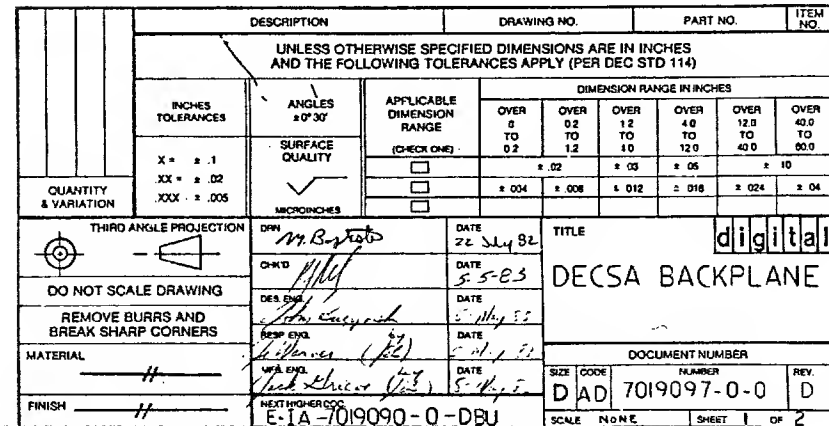 DESCRIPTION DRAWING NO. PART NO. ITEM NO.
UNLESS OTHERWISE SPECIFIED DIMENSIONS ARE IN INCHES
AND THE FOLLOWING TOLERANCES APPLY (PER DEC STD 114)
QUANTITY
& VARIATION
INCHES
TOLERANCES
X = ± .1
.XX = ± .02
.XXX - ± .005
ANGLES
± 0° 30'
SURFACE
QUALITY
MICROINCHES
APPLICABLE
DIMENSION
RANGE
(CHECK ONE)
DIMENSION RANGE IN INCHES
OVER OVER OVER OVER OVER OVER
0 0.2 1.2 4.0 12.0 40.0
TO TO TO TO TO TO
0.2 1.2 12.0 40.0 60.0
± .02 ± 03 ± 05 ± 10
± 004 ± .008 ± 012 ± 016 ± 024 ± 04
THIRD ANGLE PROJECTION
DO NOT SCALE DRAWING
REMOVE BURRS AND
BREAK SHARP CORNERS
MATERIAL
FINISH
DRN DATE
22 July 82
CHK'D DATE
5-5-83
DES. ENG. DATE
John
RESP ENG. DATE
MFG. ENG. DATE
Jack
NEXT HIGHER DOC
E-IA-7019090-0-DBU
TITLE
digital
DECSA BACKPLANE
DOCUMENT NUMBER
SIZE CODE NUMBER REV.
D AD 7019097-0-0 D
SCALE NONE SHEET 1 OF 2